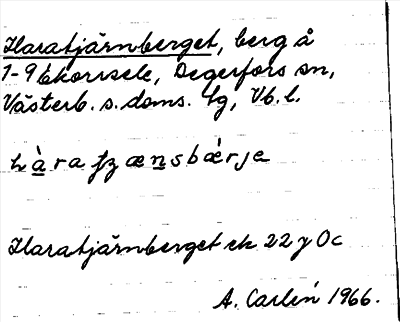 Haratjärnberget, berg å
1-9 Ekorrsele, Degerfors sn,
Västerb. s. doms. lg, Vb. l.
hàra ʃʒænsbærja
Haratjärnberget ek 22 y Oc
A. Carlén 1966.